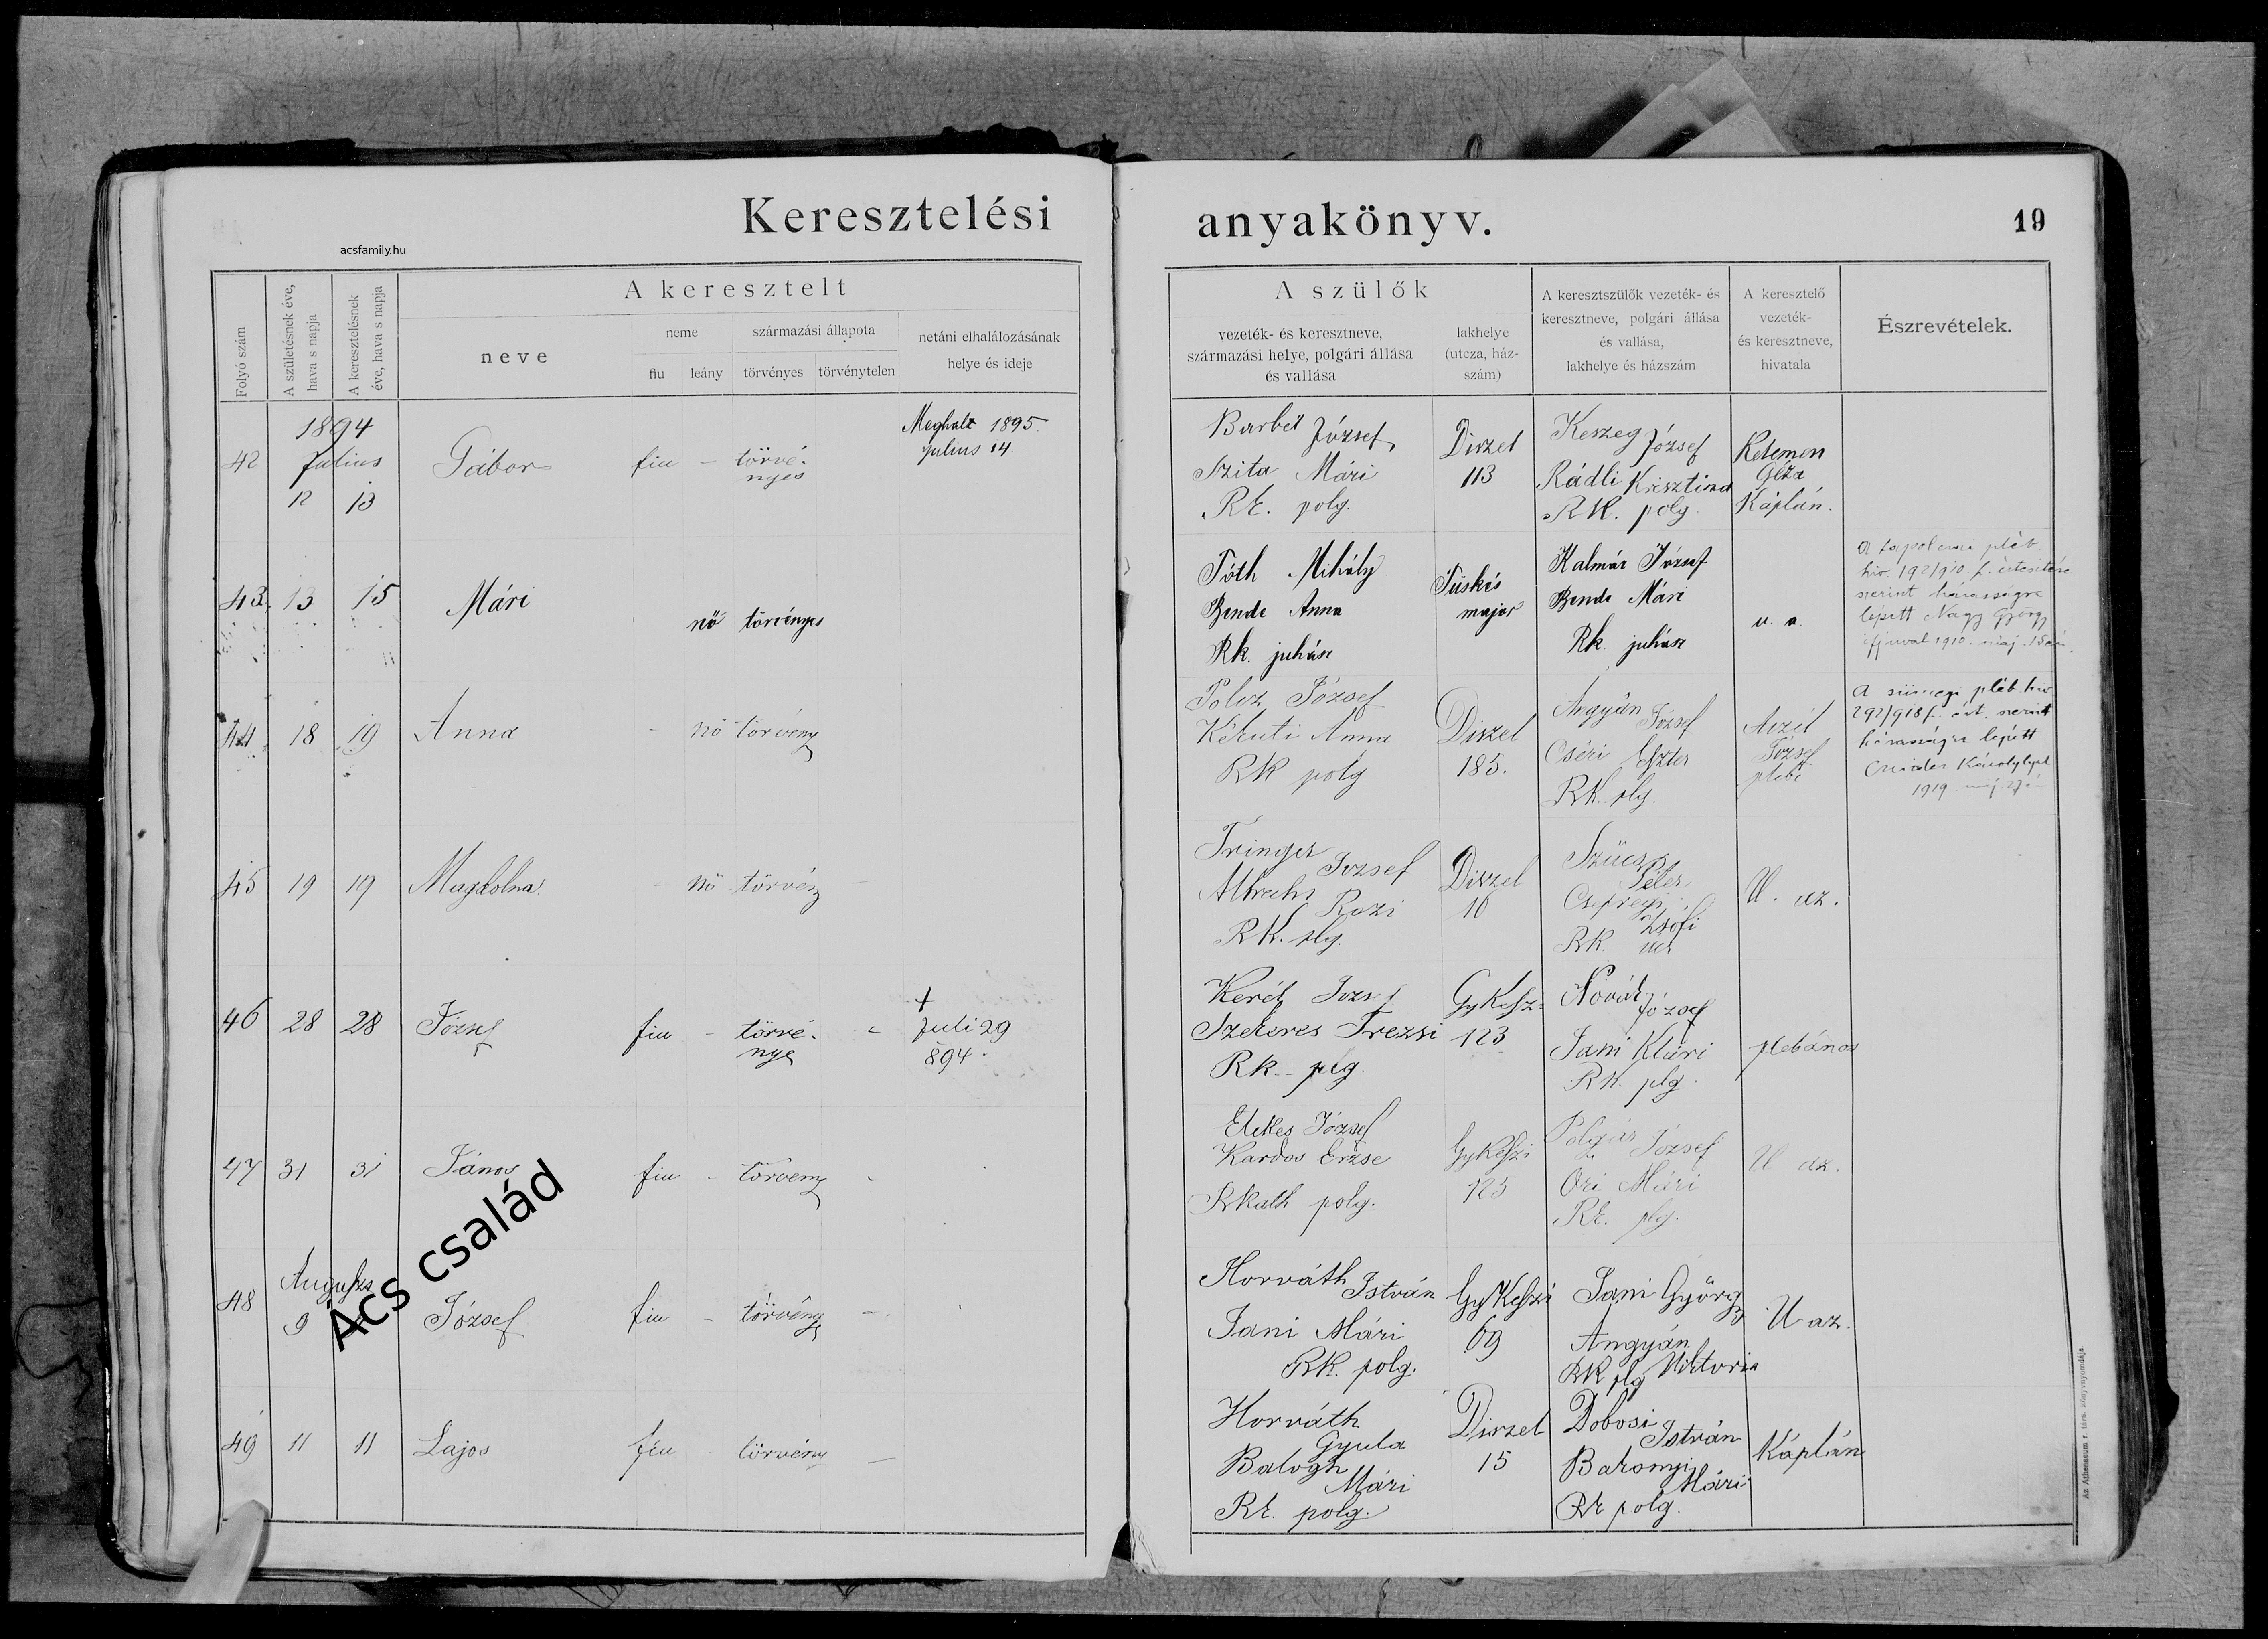 Keresztelési anyakönyv.
19
acsfamily.hu
Folyó szám
A születésnek éve, hava s napja
A keresztelésnek éve, hava s napja
A keresztelt
neve
neme
fiu
leány
származási állapota
törvényes
törvénytelen
netáni elhalálozásának
helye és ideje
A szülők
vezeték- és keresztneve,
származási helye, polgári állása
és vallása
lakhelye
(utcza, ház-
szám)
A keresztszülők vezeték- és
keresztneve, polgári állása
és vallása,
lakhelye és házszám
A keresztelő
vezeték-
és keresztneve,
hivatala
Észrevételek.
1894
Julius
42
12 13
Gábor
fiu – törvé-
nyes
Meghalt 1895.
Julius 14
József
Szita Mári
RK. polg.
Diszel
113
Keszeg József
Rádli Krisztina
RK. polg.
Kelemen
Géza
Káplán.
43. 13 15
Mári
nő törvényes
Tóth Mihály
Bende Anna
Rk. juhász
Tüskés
major
Kalmár József
Bende Mári
Rk. juhász
u. a.
a tapolcai pléb.
hiv. 192/910. f. értesitése
szerint házasságra
lépett Nagy György
ifjuval 1910. máj.
44 18 19
Anna
– nő törvény
József
Anna
RK polg
Diszel
185.
Angyán József
Cséri Eszter
RK. plg.
József
plebe
a sümegi pléb. hiv
292/918 f. ért. szerint
házasságra lépett
Károlylyal
1919
45 19 19
Magdolna.
– nő törvény –
Tringer
József
Rozi
RK. plg.
Diszel
16
Szücs
Péter
Csepregi
Zsófi
RK.
U. az.
46 28 28
József
fiu – törvé-
nye
+
Juli 29
894.
József
Szekeres Trezsi
Rk plg.
GyKeszi
123
Novák József
Jani Klári
RK. plg.
plebános
47 31 31
János
fiu - törvény -
Elekes József
Kardos Erzse
RKath polg.
GyKeszi
125
Polgár József
Őri Mári
RK. plg.
U az.
Ács család
48
Auguszs
9
József
fiu – törvény –
Horváth István
Jani Mári
RK. polg.
GyKeszi
69
Jani György
Angyán
Viktoria
RK plg
U az.
49 11 11
Lajos
fiu – törvény –
Horváth
Gyula
Balogh
Mári
RK. polg.
Diszel
15
Dobosi
István
Bakonyi
Mári
RK polg.
Káplán
Az Athenaeum r. társ. könyvnyomdája.